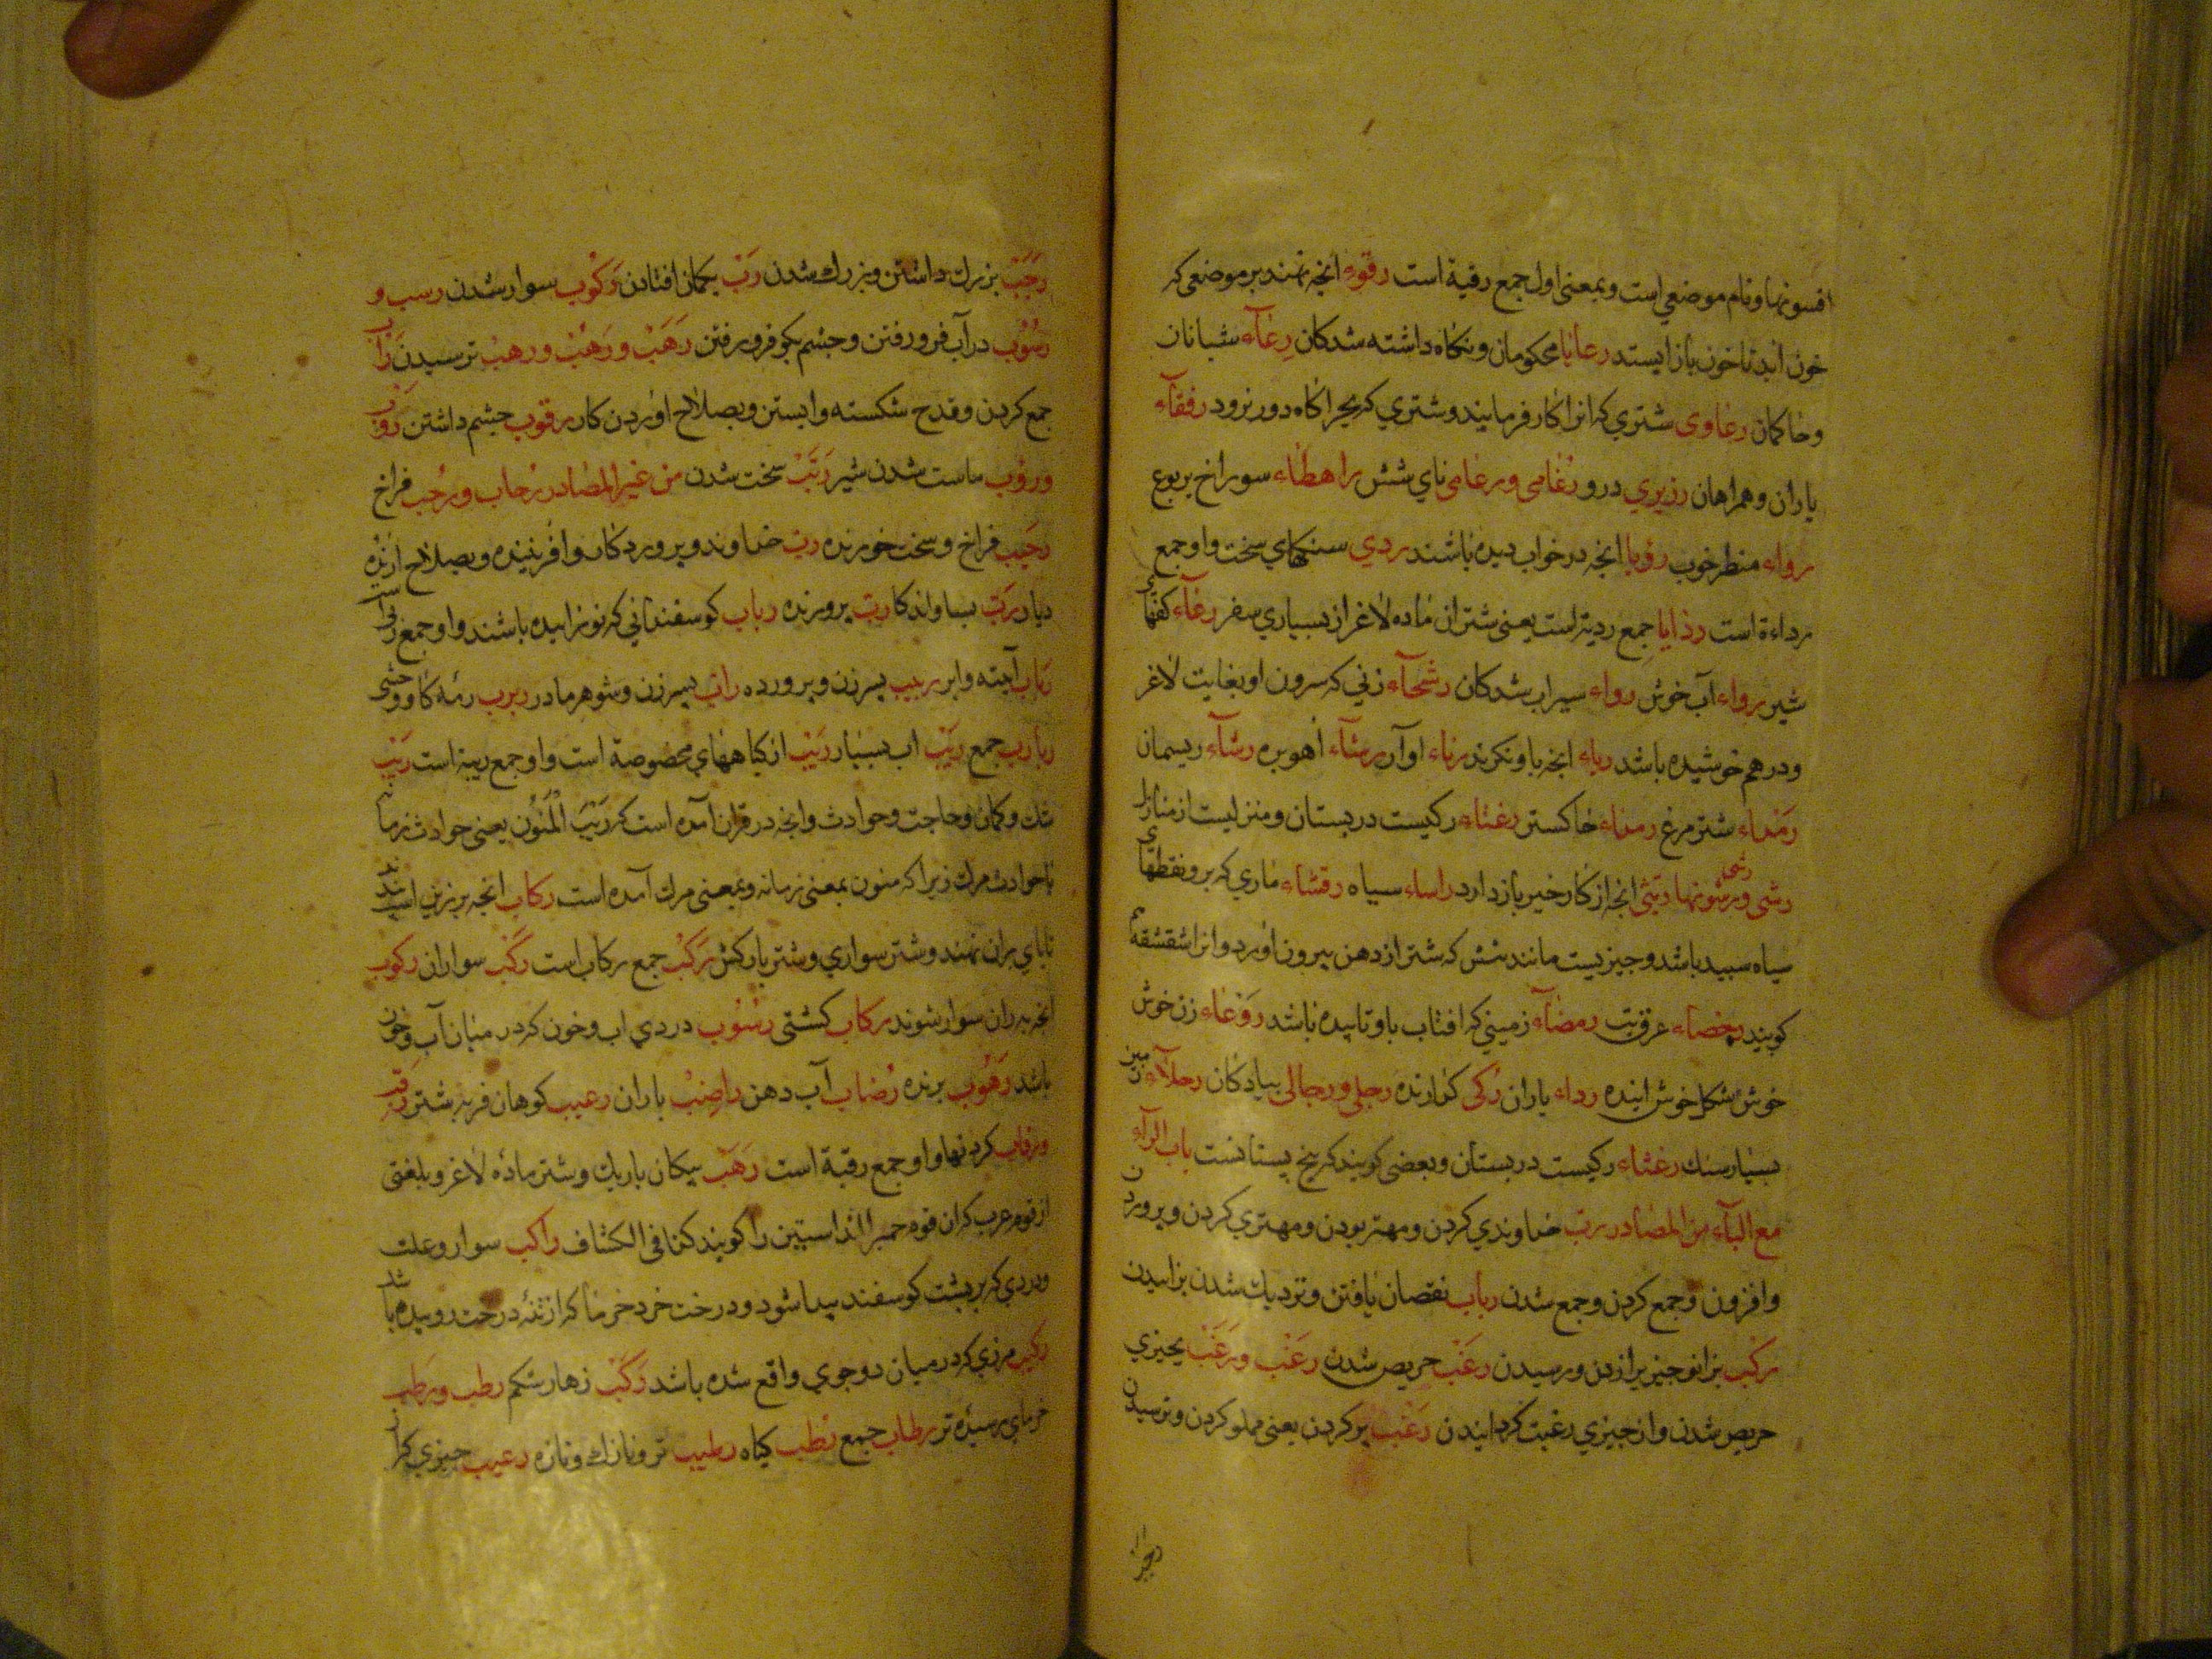 افسونها و نام موضعی است و بمعنی اول جمع رقیة است رقوء انچه نهند بر موضعی که
خون اید تا خون باز ایستد رعایا محکومان و نکاه داشته شدکان رعآء شبانان
و حاکمان رعاوی شتری که انرا کار فرمایند و شتری که بچراکاه دور نرود رفقآء
یاران و همراهان رزیری درو رغامی و رغامی نای شش راهطاء سوراخ یربوع
رواء منظر خوب رؤیا انچه در خواب دیده باشند ردی سنکهای سخت و او جمع
رداءة است رذایا جمع ردیة است یعنی شتران ماده لاغر از بسیاری سفر رغآء کفهای
شیر رواء آب خوش رواء سیراب شدکان رشحآء زنی که سرون او بغایت لاغر
و درهم خوشیده باشد رباء انچه باو نکرند رناء اوآر رشآء اهو بره رشآء ریسمان
رمداء شتر مرغ رمداء خاکستر رغثاء رکیست در پستان و منزلیست از منازل
رشی و رشونها رثیی انچه از کار خیر باز دارد راساء سیاه رقشاء ماری که برو نقطهای
سیاه سبید باشد و چیزیست مانند شش که شتر از دهن بیرون اورد و انرا شقشقه
کویند رحضاء عرق تب رمضآء زمینی که افتاب باو تابیده باشد روعاء زن خوش
خوش شکل خوش اینده رداء یاران رکی کذارنده رجلی و رجالی پیادکان رجلآء زمین
بسیار سنك رغثاء رکیست در پستان و بعضی کویند که بیخ پستانست باب الرآء
مع البآء من المصادر رب خداوندی کردن و مهتر بودن و مهتری کردن و پروردن
و افزون و جمع کردن و جمع شدن رباب نقصان یافتن و نزدیك شدن بزاییدن
رکب بزانو چیزیرا زدن و رسیدن رغب حریص شدن رغب و رغب بچیزی
حریص شدن و از چیزی رغبت کردانیدن رعب پر کردن یعنی مملو کردن و ترسیدن
رجب بزرك داشتن و بزرك شدن ریب بکمان افتادن رکوب سوار شدن رسب و
رسوب در آب فرو رفتن و چشم بکو فرو رفتن رهب و رهب و رهب ترسیدن رأب
جمع کردن و قدح شکسته وا بستن و بصلاح اوردن کار رقوب چشم داشتن روب
و رؤب ماست شدن شیر رتب سخت شدن من غیر المصادر رحاب و رحب فراخ
رحیب فراخ و سخت خورنده رب خداوند و پروردکار و افریننده و بصلاح ارنده
ربرب بسا واند کارب پرورنده رباب کوسفندانی که نو زاییده باشند و او جمع ربی است
رباب آبنه و ابر ربیب پسر زن و پرورده راب پسر زن و شوهر مادر ربرب رمه کاو وحشی
ربارب جمع ربب اب بسیار ربب از کیاههای مخصوصة است و او جمع ربة است ریب
شك و کمان و حاجت و حوادث و انچه در قران آمده است که ریب المنون یعنی حوادث زمان
یا حوادث مرك زیرا که منون بمعنی زمانه و بمعنی مرك آمده است رکاب انچه بر زین اسب بندند
تا پای بران نهند و شتر سواری و شتر بارکش رکب جمع رکاب است رکب سواران رکوب
انچه بران سوار شوند رکاب کشتی رسوب دردی اب و خون که در میان آب و خون
باشد رهوب برنده رضاب آب دهن راضب باران رعیب کوهان فربه شتر رقب
و رقاب کردنها و او جمع رقبة است رهب پیکان باریك و شتر ماده لاغر و بلغتی
از قوم عرب که ان قوم حمیر اند استین را کویند کذا فی الکشاف راکب سوار و علت
و دردی که بر پشت کوسفند پیدا شود و درخت خرد خرما که از تنه درخت روییده باشد
رکیب مرزی که در میان دو جوی واقع شده باشد رکب زهار شکم رطب و رطب
خرمای رسیده تر رطاب جمع رطب کیاه رطیب تر و نازك و تازه رعیب چیزی که از